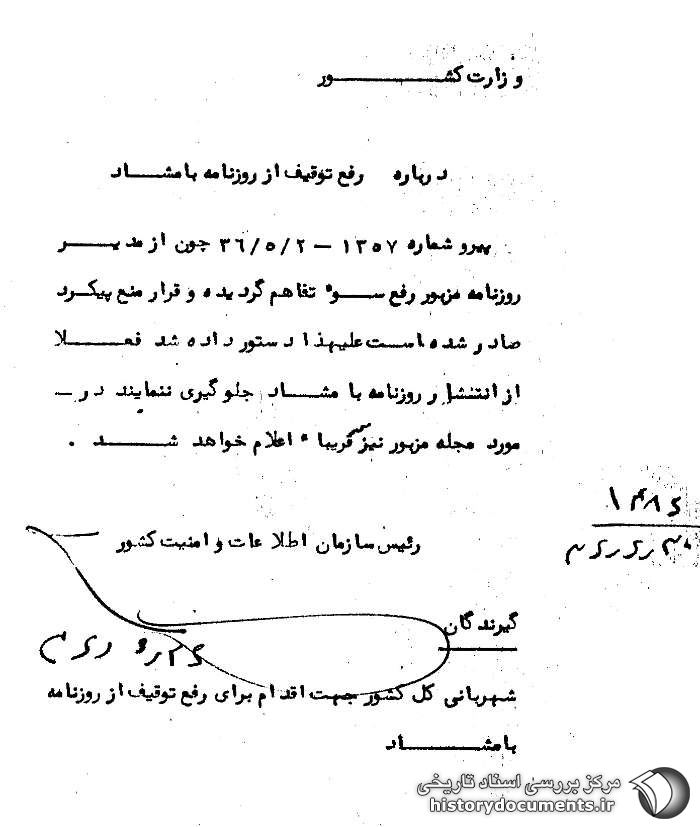 وزارت کشـــــــــور
درباره رفع توقیف از روزنامه بامشـــاد
پیرو شماره ۱۳۵۷ – ۳۶/۵/۲ چون از مدیـــــر
روزنامه مزبور رفع ســوء تفاهم گردیده و قرار منع پیگرد
صادر شده است علیهذا دستور داده شد فعـــلا
از انتشار روزنامه بامشـــاد جلوگیری ننمایند در ــ
مورد مجله مزبور نیز قریبا ً اعلام خواهد شـــــد .
رئیس سازمان اطلاعات و امنیت کشور
گیرندگان
شهربانی کل کشور جهت اقدام برای رفع توقیف از روزنامه
بامشـــــــاد
مرکز بررسی اسناد تاریخی
historydocuments.ir